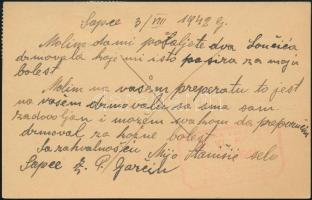 Sapce 3/VIII 1942 g.
Molim da mi pošaljete dva Lončića
drmovala koje mi isto pasira za moju
bolest
Molim na vašem preparatu to jest
na vašem drmovalu sa sma sam
zadovoljan i možem svakom da preporučim
drmoval za kožne bolest
Sa zahvalnošću Mijo Stanišić selo
Sapce P. Garčin